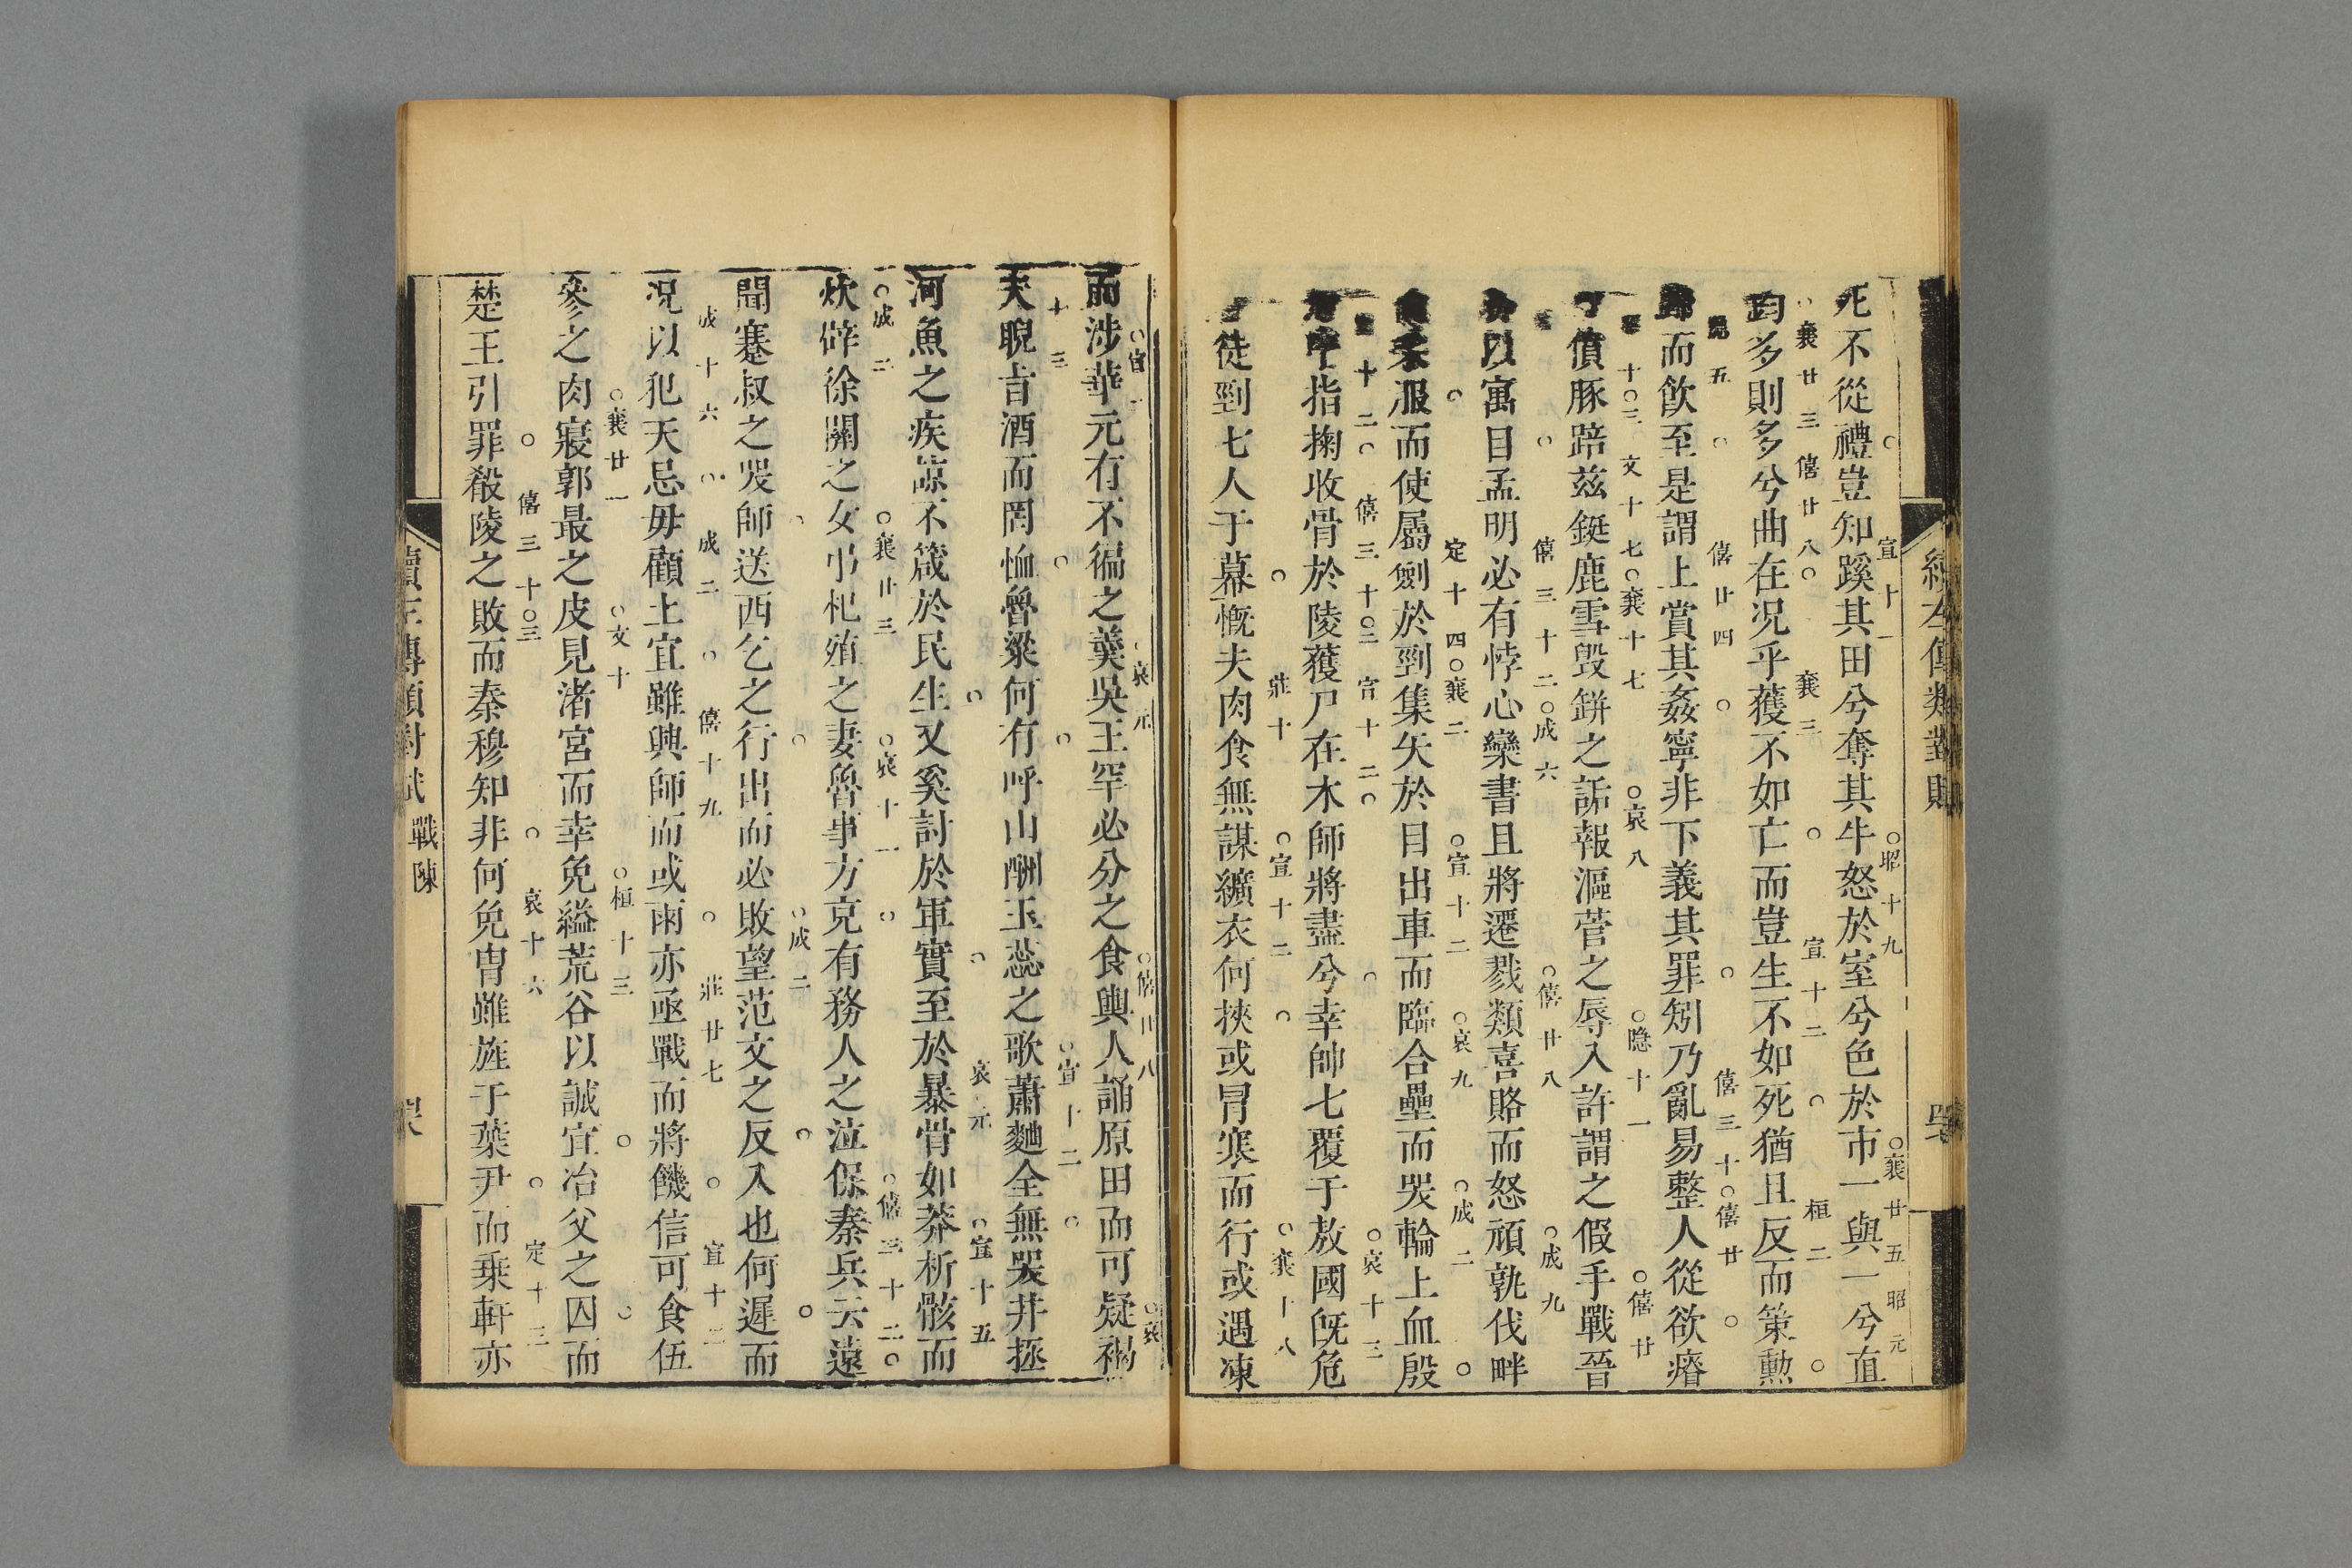 死不從禮豈知蹊其田兮奪其牛怒於室兮色於市一與一兮直
宣十一 昭十九 襄廿五 昭元
鈞多則多兮曲在况乎獲不如亡而豈生不如死猶且反而策勲
襄廿三 僖廿八 襄三 宣十二 桓二
歸而飲至是謂上賞其姦寧非下義其罪矧乃亂易整人從欲瘠
五 僖廿四 僖三十 僖廿
債豚踣兹鋌鹿雪毀缾之詬報漚菅之辱入許謂之假手戰晉
十三 文十七 襄十七 哀八 隱十一 僖廿
以寓目孟明必有悖心欒書且將遷戮類喜賂而怒頑孰伐畔
僖三十二 成六 僖廿八 成九
服而使屬劍於剄集矢於目出車而臨合壘而哭輪上血殷
定十四 襄二 宣十二 哀九 成二
指掬收骨於陵獲尸在木師將盡兮幸帥七覆于敖國旣危
十二 僖三十二 宣十二 哀十三
徒剄七人于幕慨夫肉食無謀纊衣何挾或冒寒而行或遇凍
莊十 宣十二 襄十八
而涉華元有不徧之羹吳王罕必分之食輿人誦原田而可疑褐
宣二 哀元 僖廿八 哀
夫睨旨酒而罔恤魯粱何有呼山酬玉蕊之歌蕭麯全無哭井拯
十三 宣十二
河魚之疾諒不箴於民生又奚討於軍實至於暴骨如莽析骸而
哀元 宣十五
炊辟徐關之女弔杞殖之妻魯事方克有務人之泣保秦兵云遠
成二 襄廿三 哀十一 僖三十二
聞蹇叔之哭師送西乞之行出而必敗望范文之反入也何遲而
成二
况以犯天忌毋顧土宜雖興師而或雨亦亟戰而將饑信可食伍
成十六 成二 僖十九 莊廿七 宣十二
參之肉寢郭最之皮見渚宮而幸免縊荒谷以誠宜冶父之囚而
襄廿一 文十 桓十三
楚王引罪殽陵之敗而秦穆知非何免胄雖旌于葉尹而乗軒亦
僖三十三 哀十六 定十三
續左傳類對賦 戰陳